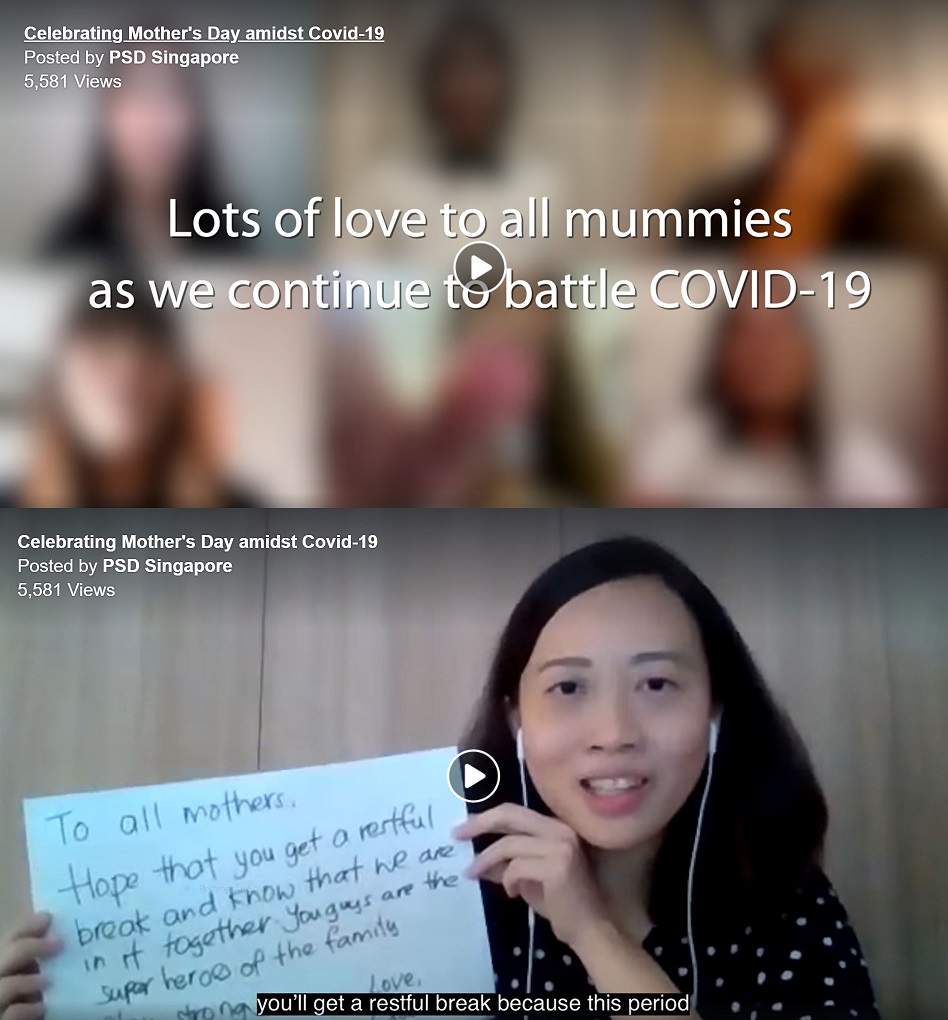 Celebrating Mother's Day amidst Covid-19
Posted by PSD Singapore
5,581 Views
Lots of love to all mummies
as we continue to battle COVID-19
Celebrating Mother's Day amidst Covid-19
Posted by PSD Singapore
5,581 Views
To all mothers.
Hope that you get a restful
break and know that we are
in it together. You guys are the
super heroes of the family
strong
Love,
you'll get a restful break because this period